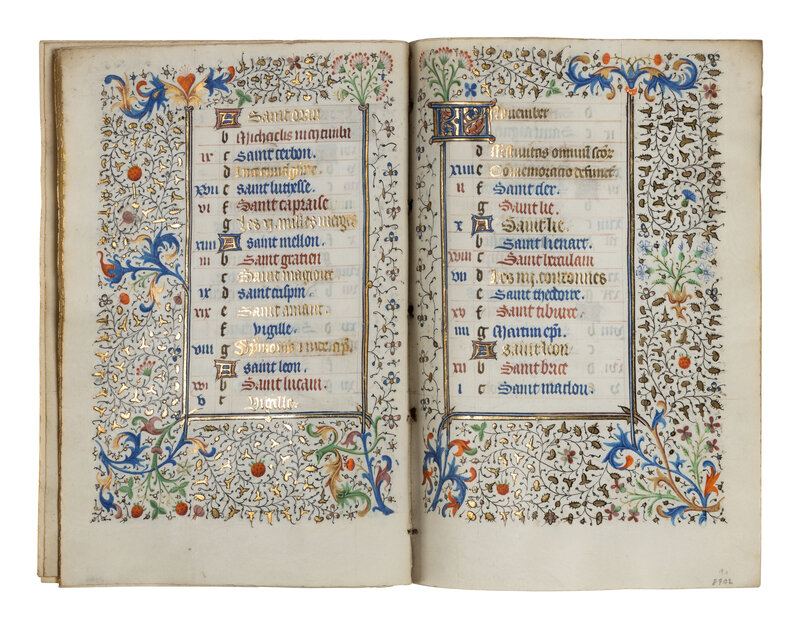 A Saint
b Michaelis in
ix c Saint cerbon.
d
xvii e Saint lucesse.
vi f Saint capraise
g Les xi. milles vierges
xiiii A saint mellon.
iii b Saint gracien
c Saint magloire
xi d saint crispin.
xix e Saint amant.
f vigille.
viii g Symonis
A saint leon.
xvi b Saint lucain
v c Vigille.
KL November
d Nativitas omnium sctor
xiiii e Comemoracio defunct
ii f Saint cler.
g Saint lie.
x A Saint lie
b Saint lienart.
xviii c Saint
vii d Les iiij. couronnes
e Saint theodore.
xv f Saint tiburce.
iiii g Martini epi.
A saint leon
xii b Saint brice
i c Saint maclou.
8902